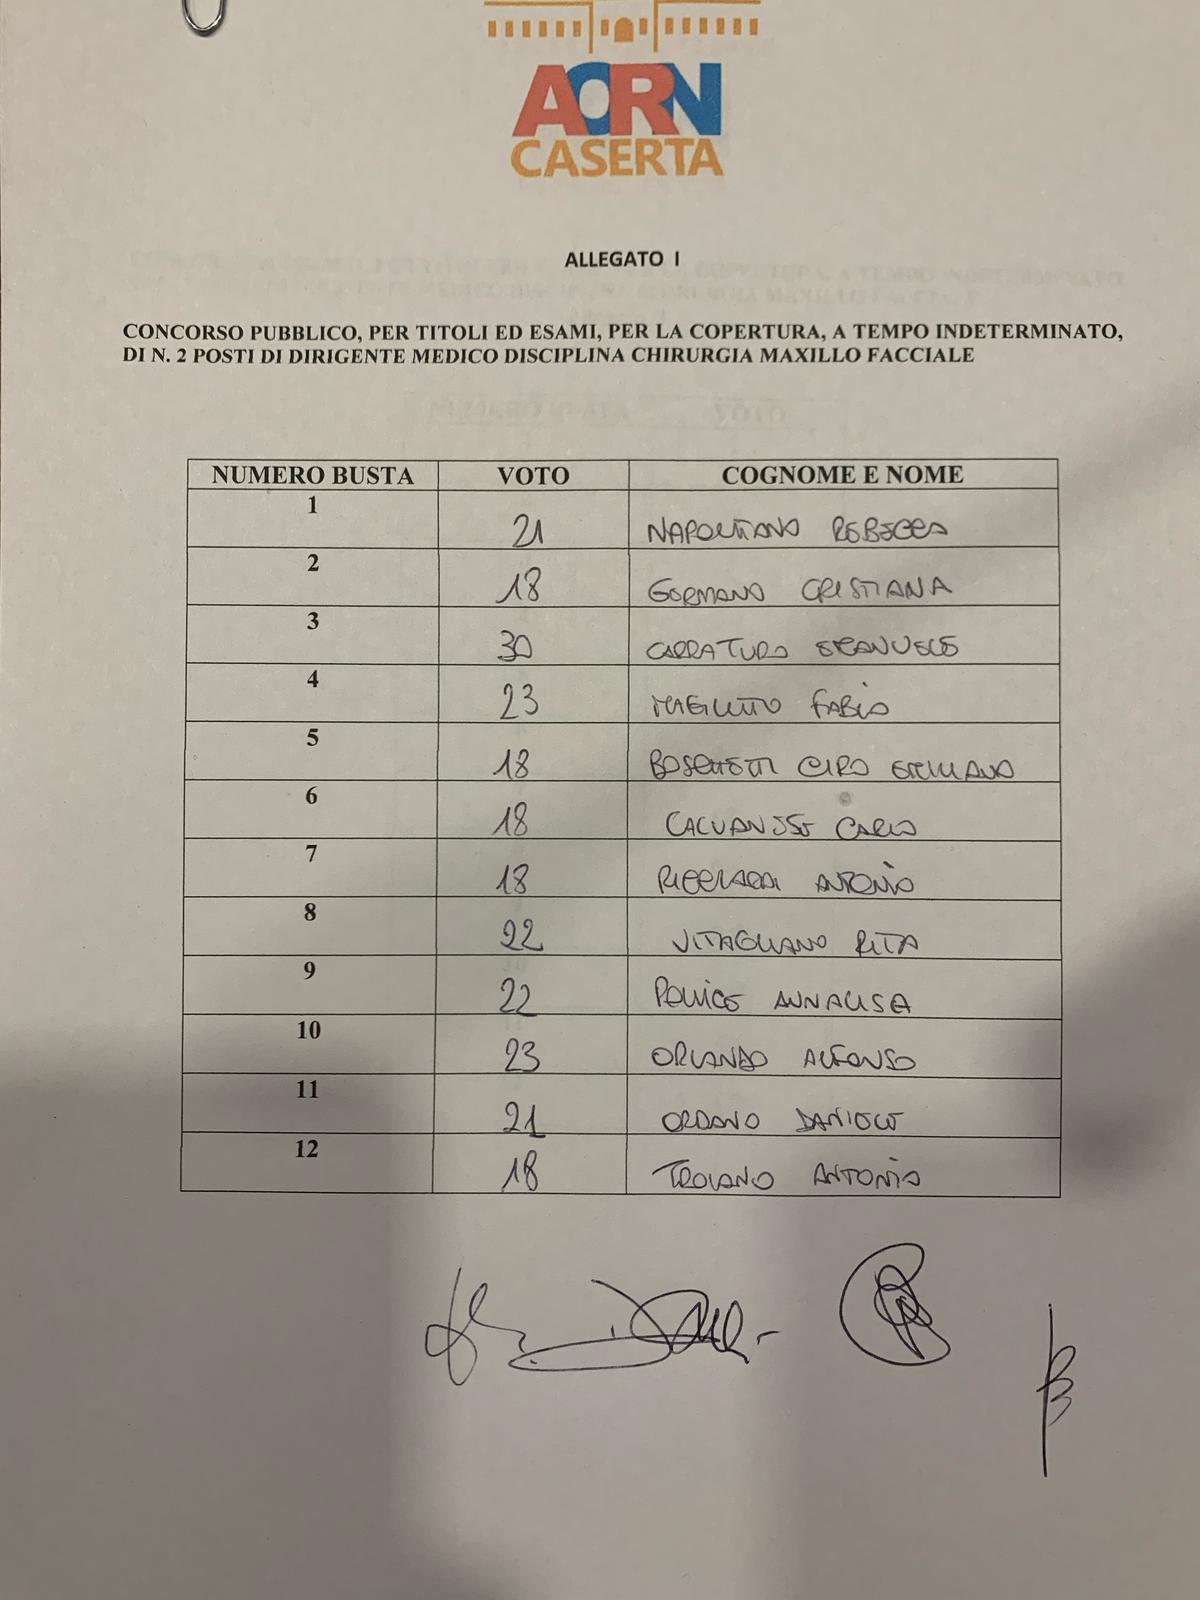 AORN
CASERTA
ALLEGATO I
CONCORSO PUBBLICO, PER TITOLI ED ESAMI, PER LA COPERTURA, A TEMPO INDETERMINATO,
DI N. 2 POSTI DI DIRIGENTE MEDICO DISCIPLINA CHIRURGIA MAXILLO FACCIALE
NUMERO BUSTA VOTO COGNOME E NOME
1 21 NAPOLITANO REBECCA
2 18 GORMANO CRISTIANA
3 30 CARRATURO EMANUELE
4 23 MAGLITTO FABIO
5 18 BOSCHETTI CIRO EMILIANO
6 18 CALVANESE CARLO
7 18 RICCIARDI ANTONIO
8 22 VITAGLIANO RITA
9 22 POLLICE ANNALISA
10 23 ORLANDO ALFONSO
11 21 ORDANO DANIELE
12 18 TROIANO ANTONIO